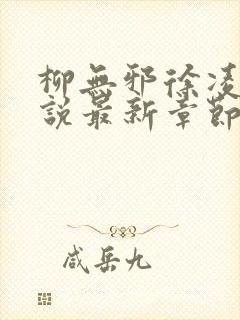 柳無邪徐凌
說最新章節
咸岳九